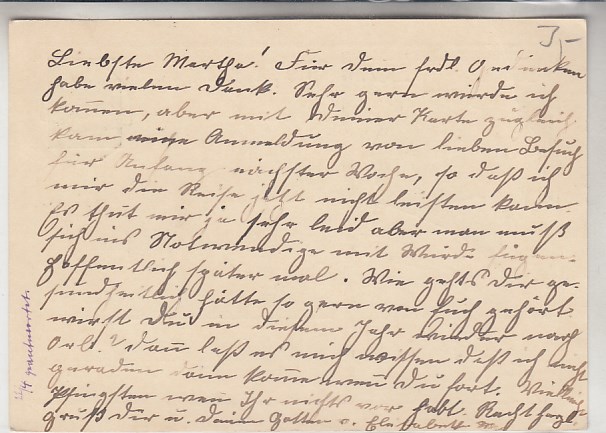 3,-
Liebste Martha! Für Dein frdl. Gedenken
habe vielen Dank. Sehr gern würde ich
kommen, aber mit Deiner Karte zugleich
kam eine Anmeldung von lieben Besuch
für Anfang nächster Woche, so daß ich
mir die Reise jetzt nicht leisten kann.
Es thut mir ja sehr leid aber man muß
sich ins Notwendige mit Würde fügen.
Hoffentlich später mal. Wie gehts Dir ge-
sundheitlich hätte so gern von Euch gehört.
wirst Du in diesem Jahr wieder nach
Orb.? dann laß es mich wissen daß ich nicht
geradun dann komme wenn Du fort. Vielleicht
Pfingsten wenn Ihr nichts vor habt. Recht herzl.
Gruß Dir u. Deinen Gatten v. Elisabeth
beantwortet